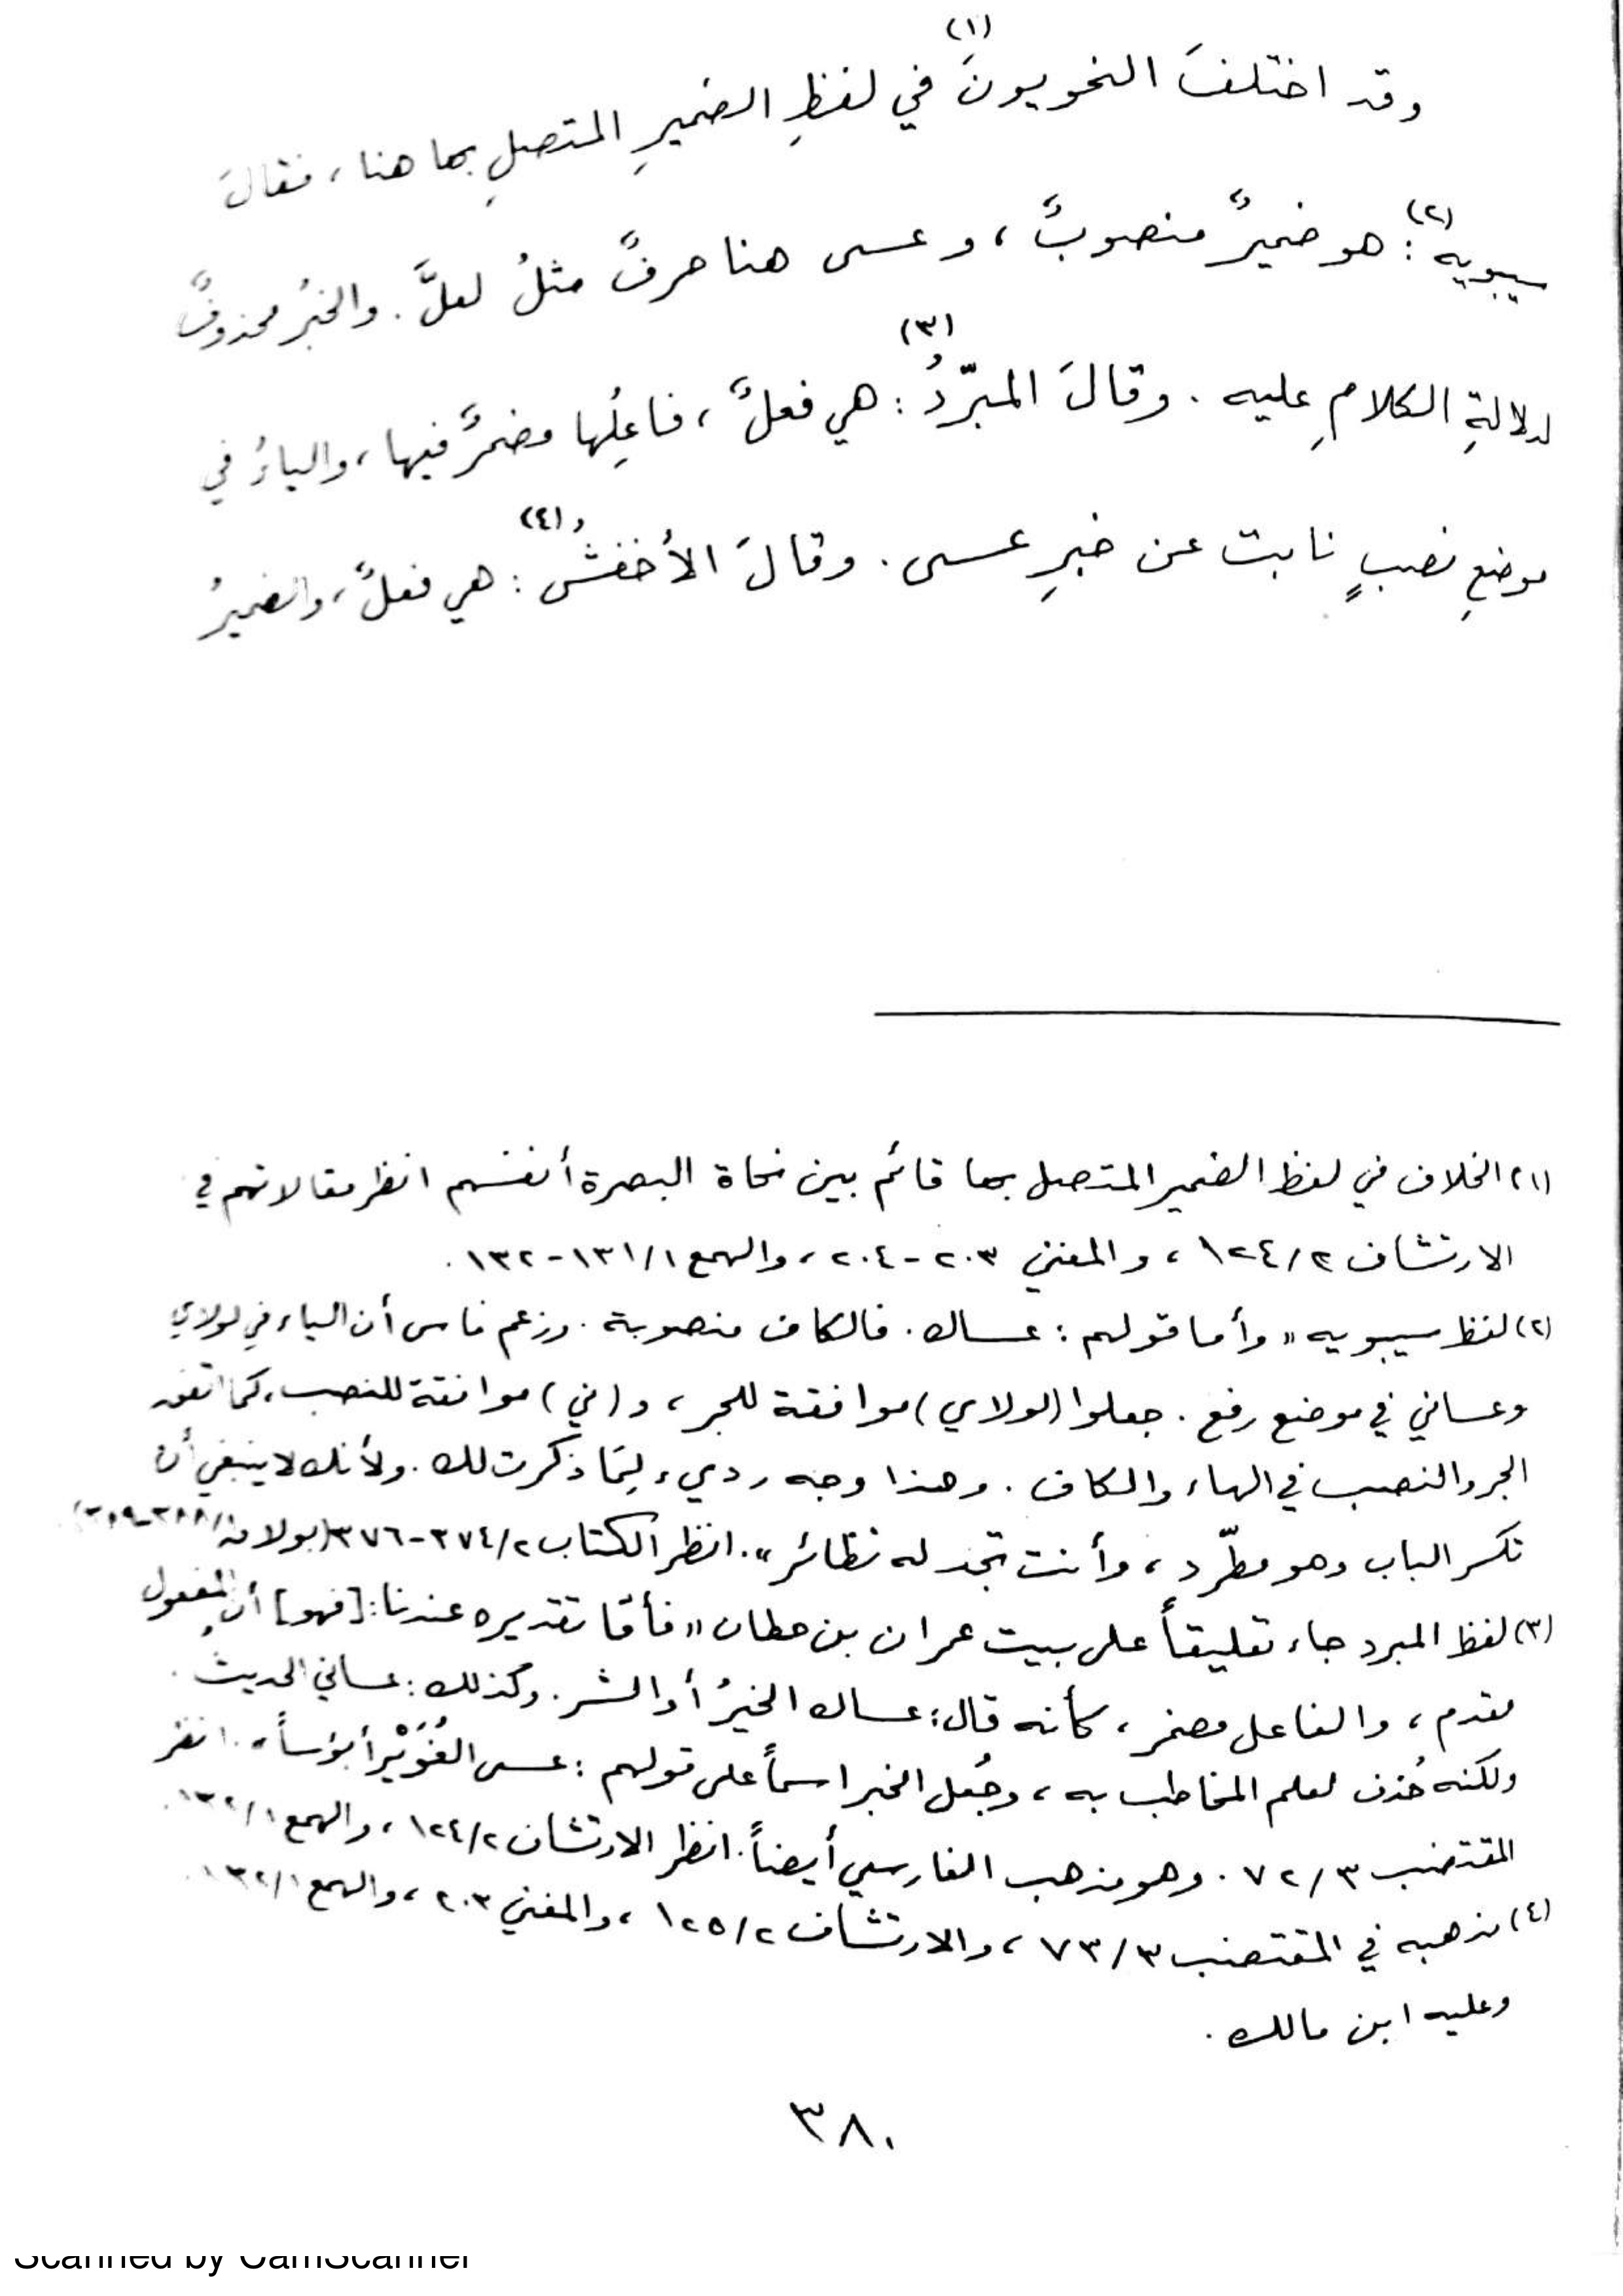 وقد اختلفَ النحويونَ (١) في لفظِ الضميرِ المتصلِ بها هنا ، فقالَ
سيبويه (٢) : هو ضميرٌ منصوبٌ ، وعسى هنا حرفٌ مثلُ لعلَّ . والخبرُ محذوفٌ
لدلالةِ الكلامِ عليه . وقالَ المبرّدُ (٣) : هي فعلٌ ، فاعلُها مضمرٌ فيها ، والياءُ في
موضعِ نصبٍ نابت عن خبرِ عسى . وقالَ الأخفشُ (٤) : هي فعلٌ ، والضميرُ
(١) الخلاف في لفظ الضمير المتصل بها قائم بين نحاة البصرة أنفسهم انظر مقالاتهم في
الارتشاف ١٢٤/٢ ، والمغني ٢٠٣-٢٠٤ ، والهمع ١٣١/١-١٣٢ .
(٢) لفظ سيبويه " وأما قولهم : عساك . فالكاف منصوبة . وزعم ناس أن الياء في لولاي
وعساني في موضع رفع . جعلوا (لولاي) موافقة للجر ، و (ني) موافقة للنصب ، كما اتفق
الجر والنصب في الهاء والكاف . وهذا وجه رديء لِمَا ذكرت لك . ولأنك لا ينبغي أن
تكسر الباب وهو مطّرد ، وأنت تجد له نظائر " . انظر الكتاب ٣٧٤/٢-٣٧٦ (بولاق
(٣) لفظ المبرد جاء تعليقاً على بيت عمران بن حطان " فأمّا تقديره عندنا : [فهو] أن المفعول
مقدم ، والفاعل مضمر ، كأنه قال : عساك الخيرُ أو الشر . وكذلك : عساني الحديث .
ولكنه حُذف لعلم المخاطب به ، وجُعل الخبر اسماً على قولهم : عسى الغُوَيْر أبؤساً " . انظر
المقتضب ٧٢/٣ . وهو مذهب الفارسي أيضاً . انظر الارتشاف ١٢٤/٢ ، والهمع ١٣٢/١ .
(٤) مذهبه في المقتضب ٧٣/٣ ، والارتشاف ١٢٥/٢ ، والمغني ٢٠٣ ، والهمع ١٣٢/١ .
وعليه ابن مالك .
٣٨٠
Scanned by CamScanner